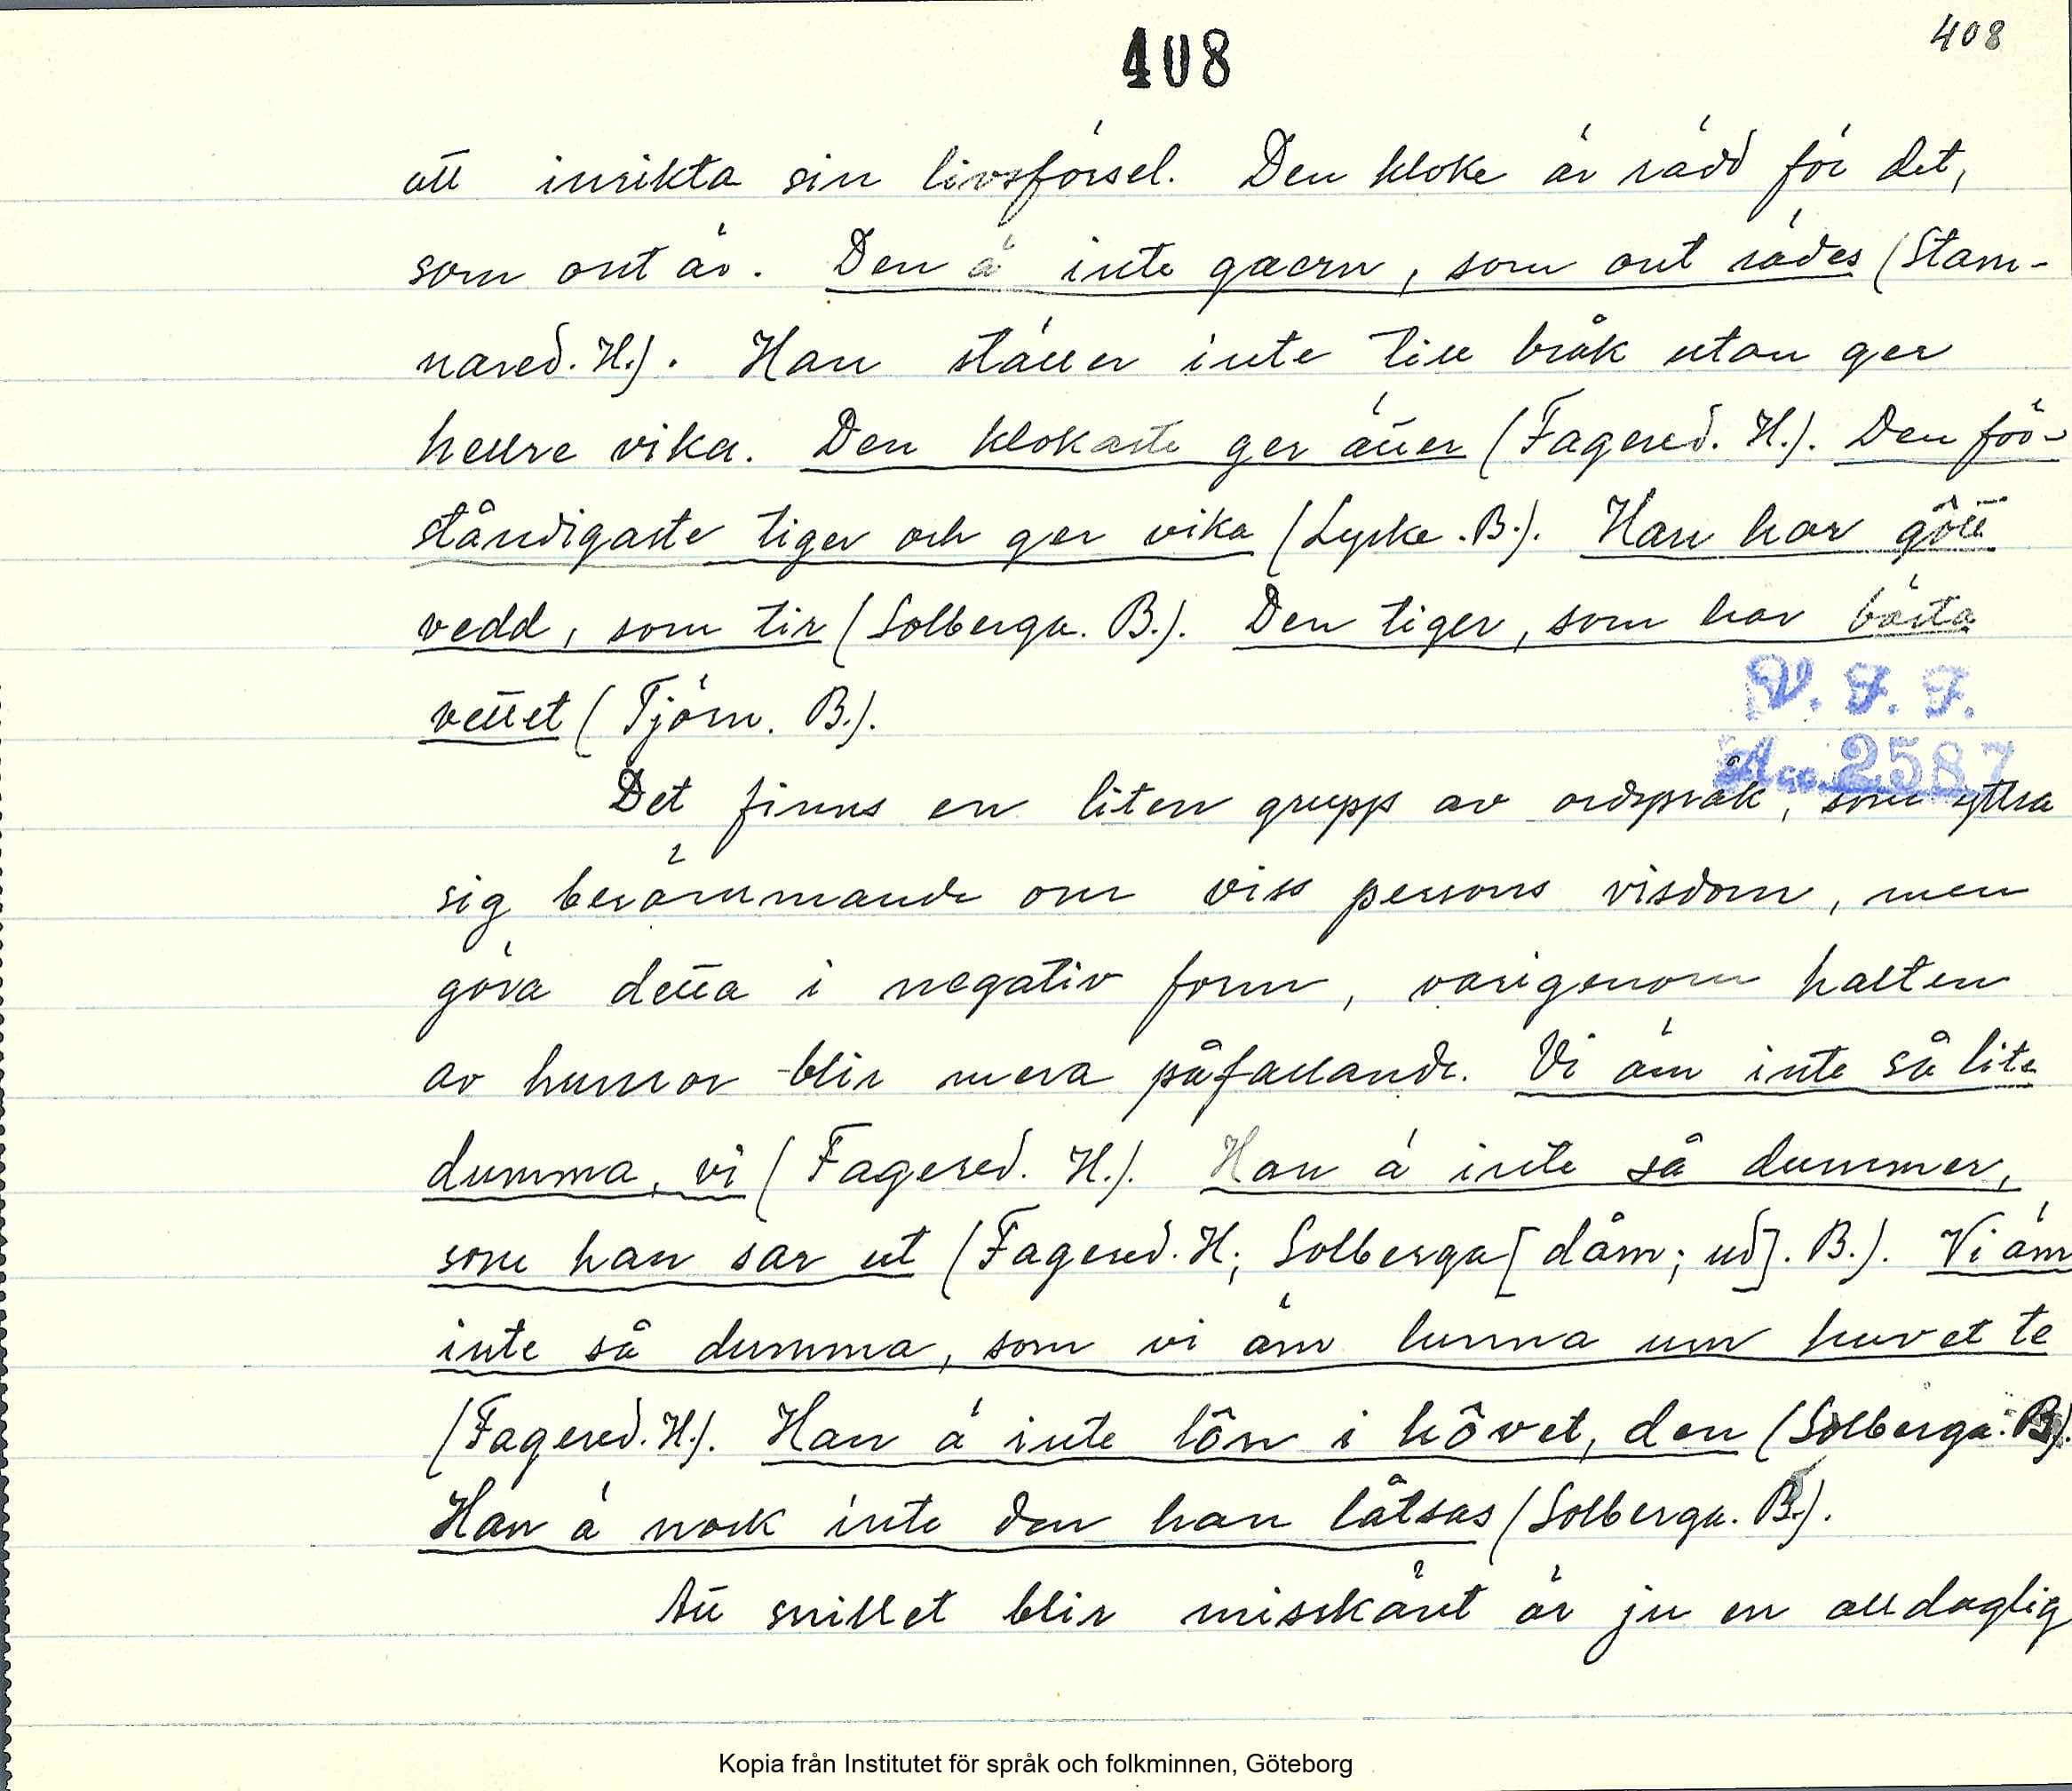 408
408
att inrikta sin livsförsel. Den kloke är rädd för det,
som ont är. Den ä inte gaern, som ont rädes (Stam-
nared. H.). Han ställer inte till bråk utan ger
hellre vika. Den klokaste ger äller (Fagered. H.). Den för-
ståndigaste tiger och ger vika (Lycke. B.). Han har gôtt
vedd, som tir (Solberga. B.). Den tiger, som har bästa
vettet (Tjörn. B.).
V. F. F.
Acc. 2587
Det finns en liten grupp av ordspråk, som yttra
sig berömmande om viss persons visdom, men
göra detta i negativ form, varigenom halten
av humor blir mera påfallande. Vi äm inte så lite
dumma, vi (Fagered. H.). Han ä inte så dummer,
som han sar ut (Fagered. H; Solberga [dåm; ud]. B.). Vi äm
inte så dumma, som vi äm lunna um huvet te
(Fagered. H.). Han ä inte lôn i hôvet, den (Solberga. B.).
Han ä nock inte den han låtsas (Solberga. B.).
Att snillet blir misskänt är ju en alldaglig
Kopia från Institutet för språk och folkminnen, Göteborg